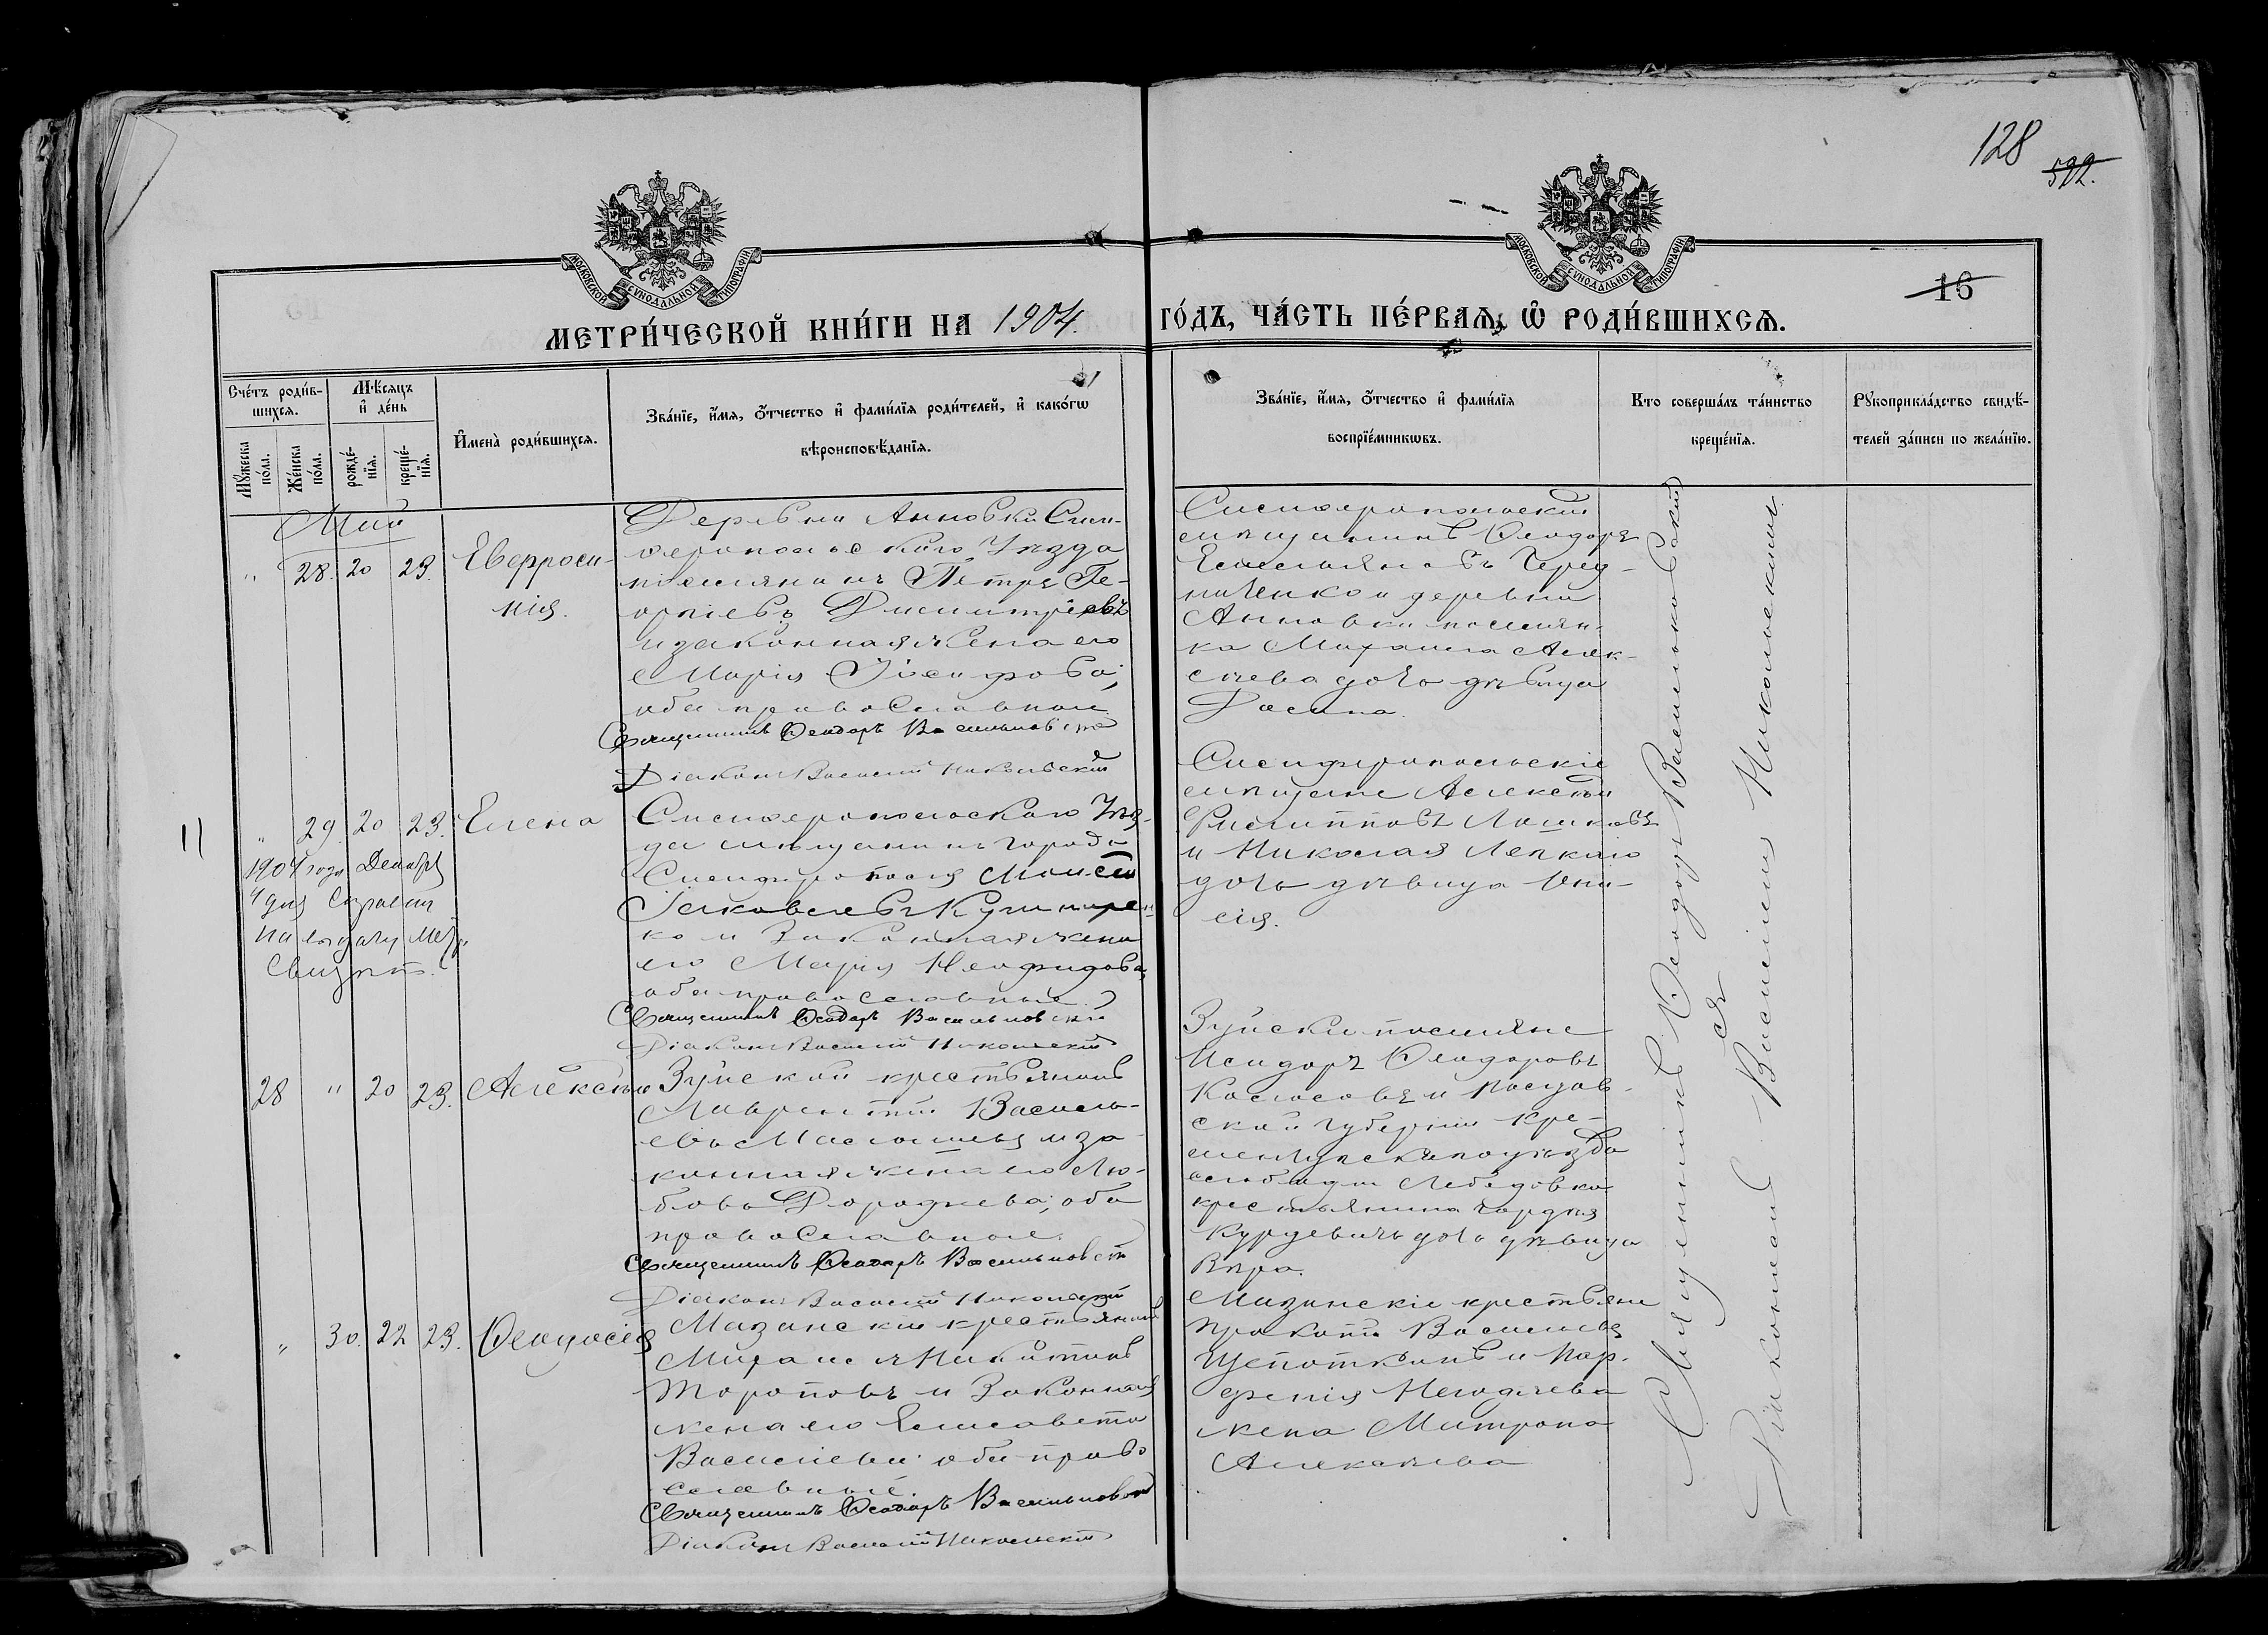 128
592.
МОСКОВСКОЙ СѴНОДАЛЬНОЙ ТИПОГРАФІИ
МОСКОВСКОЙ СѴНОДАЛЬНОЙ ТИПОГРАФІИ
16
МЕТРИ́ЧЕСКОЙ КНИ́ГИ НА 1904. ГО́ДЪ, ЧА́СТЬ ПЕ́РВАЯ, Ѡ҆ РОДИ́ВШИХСЯ.
Сче́тъ роди́в-
шихся.
Му́жеска по́ла.
Же́нска по́ла.
Мѣ́сяцъ
и҆ де́нь
рожде́-
нїя.
креще́-
нїя.
И҆мена̀ роди́вшихся.
Зва́нїе, и҆́мя, ѻ҆́тчество и҆ фами́лїя роди́телей, и҆ како́гѡ
вѣроисповѣ́данїя.
Зва́нїе, и҆́мя, ѻ҆́тчество и҆ фами́лїя
воспрїе́мникѡвъ.
Кто соверша́лъ та́инство
креще́нїя.
Рꙋкоприкла́дство свидѣ́-
телей за́писи по жела́нїю.
Май
" 28. 20 23.
Евфроси-
нія.
Деревни Анновки Сим-
феропольскаго Уѣзда
поселянинъ Петръ Ге-
оргіевъ Димитріевъ
и законная жена его
Марія Іосифова;
оба православные
Священникъ Ѳеодоръ Васильковскій
Діаконъ Василій Никольскій
Симферопольскій
мѣщанинъ Ѳеодоръ
Емельяновъ Черед-
ниченко и деревни
Анновки поселян-
ка Михаила Алек-
сѣева дочь дѣвица
" 29. 20 23.
Елена
1904 года Декабря
4 дня Справки
на выдачу Метр.
Свидѣт.
Симферопольскаго Уѣз-
да мѣщанинъ города
Симферополя Моисей
Іаковлевъ Кушнирен-
ко и Законная жена
его Марія Неофидова,
оба православные.
Священникъ Ѳеодоръ Васильковскій
Діаконъ Василій Никольскій
Симферопольскіе
мѣщане Алексѣй
Филипповъ Лошковъ
и Николая Лепкаго
дочь дѣвица
28 " 20 23.
Алексѣй
Зуйской крестьянинъ
Лаврентій Василь-
евъ и за-
конная жена его Лю-
бовь Дорофеева; оба
православные.
Священникъ Ѳеодоръ Васильковскій
Діаконъ Василій Никольскій
Зуйскіи поселяне
Исидоръ Ѳеодоровъ
Колосовъ и Полтав-
ской губерніи Кре-
менчугскаго уѣзда
слободы
крестьянина Гордѣя
Курдевичъ дочь дѣвица
Вѣра.
" 30. 22 23.
Ѳеодосія
Мазанскій крестьянинъ
Михаилъ Никитинъ
Тороповъ и Законная
жена его Елисавета
Васильева оба право
славные.
Священникъ Ѳеодоръ Васильковскій
Діаконъ Василій Никольскій
Мазанскіе крестьяне
Прокопій Васильевъ
Щепоткинъ и Пар-
ѳенія
жена Митрофа
Алексѣева
Священникъ Ѳеодоръ Васильковскій
Діаконъ Василій Никольскій